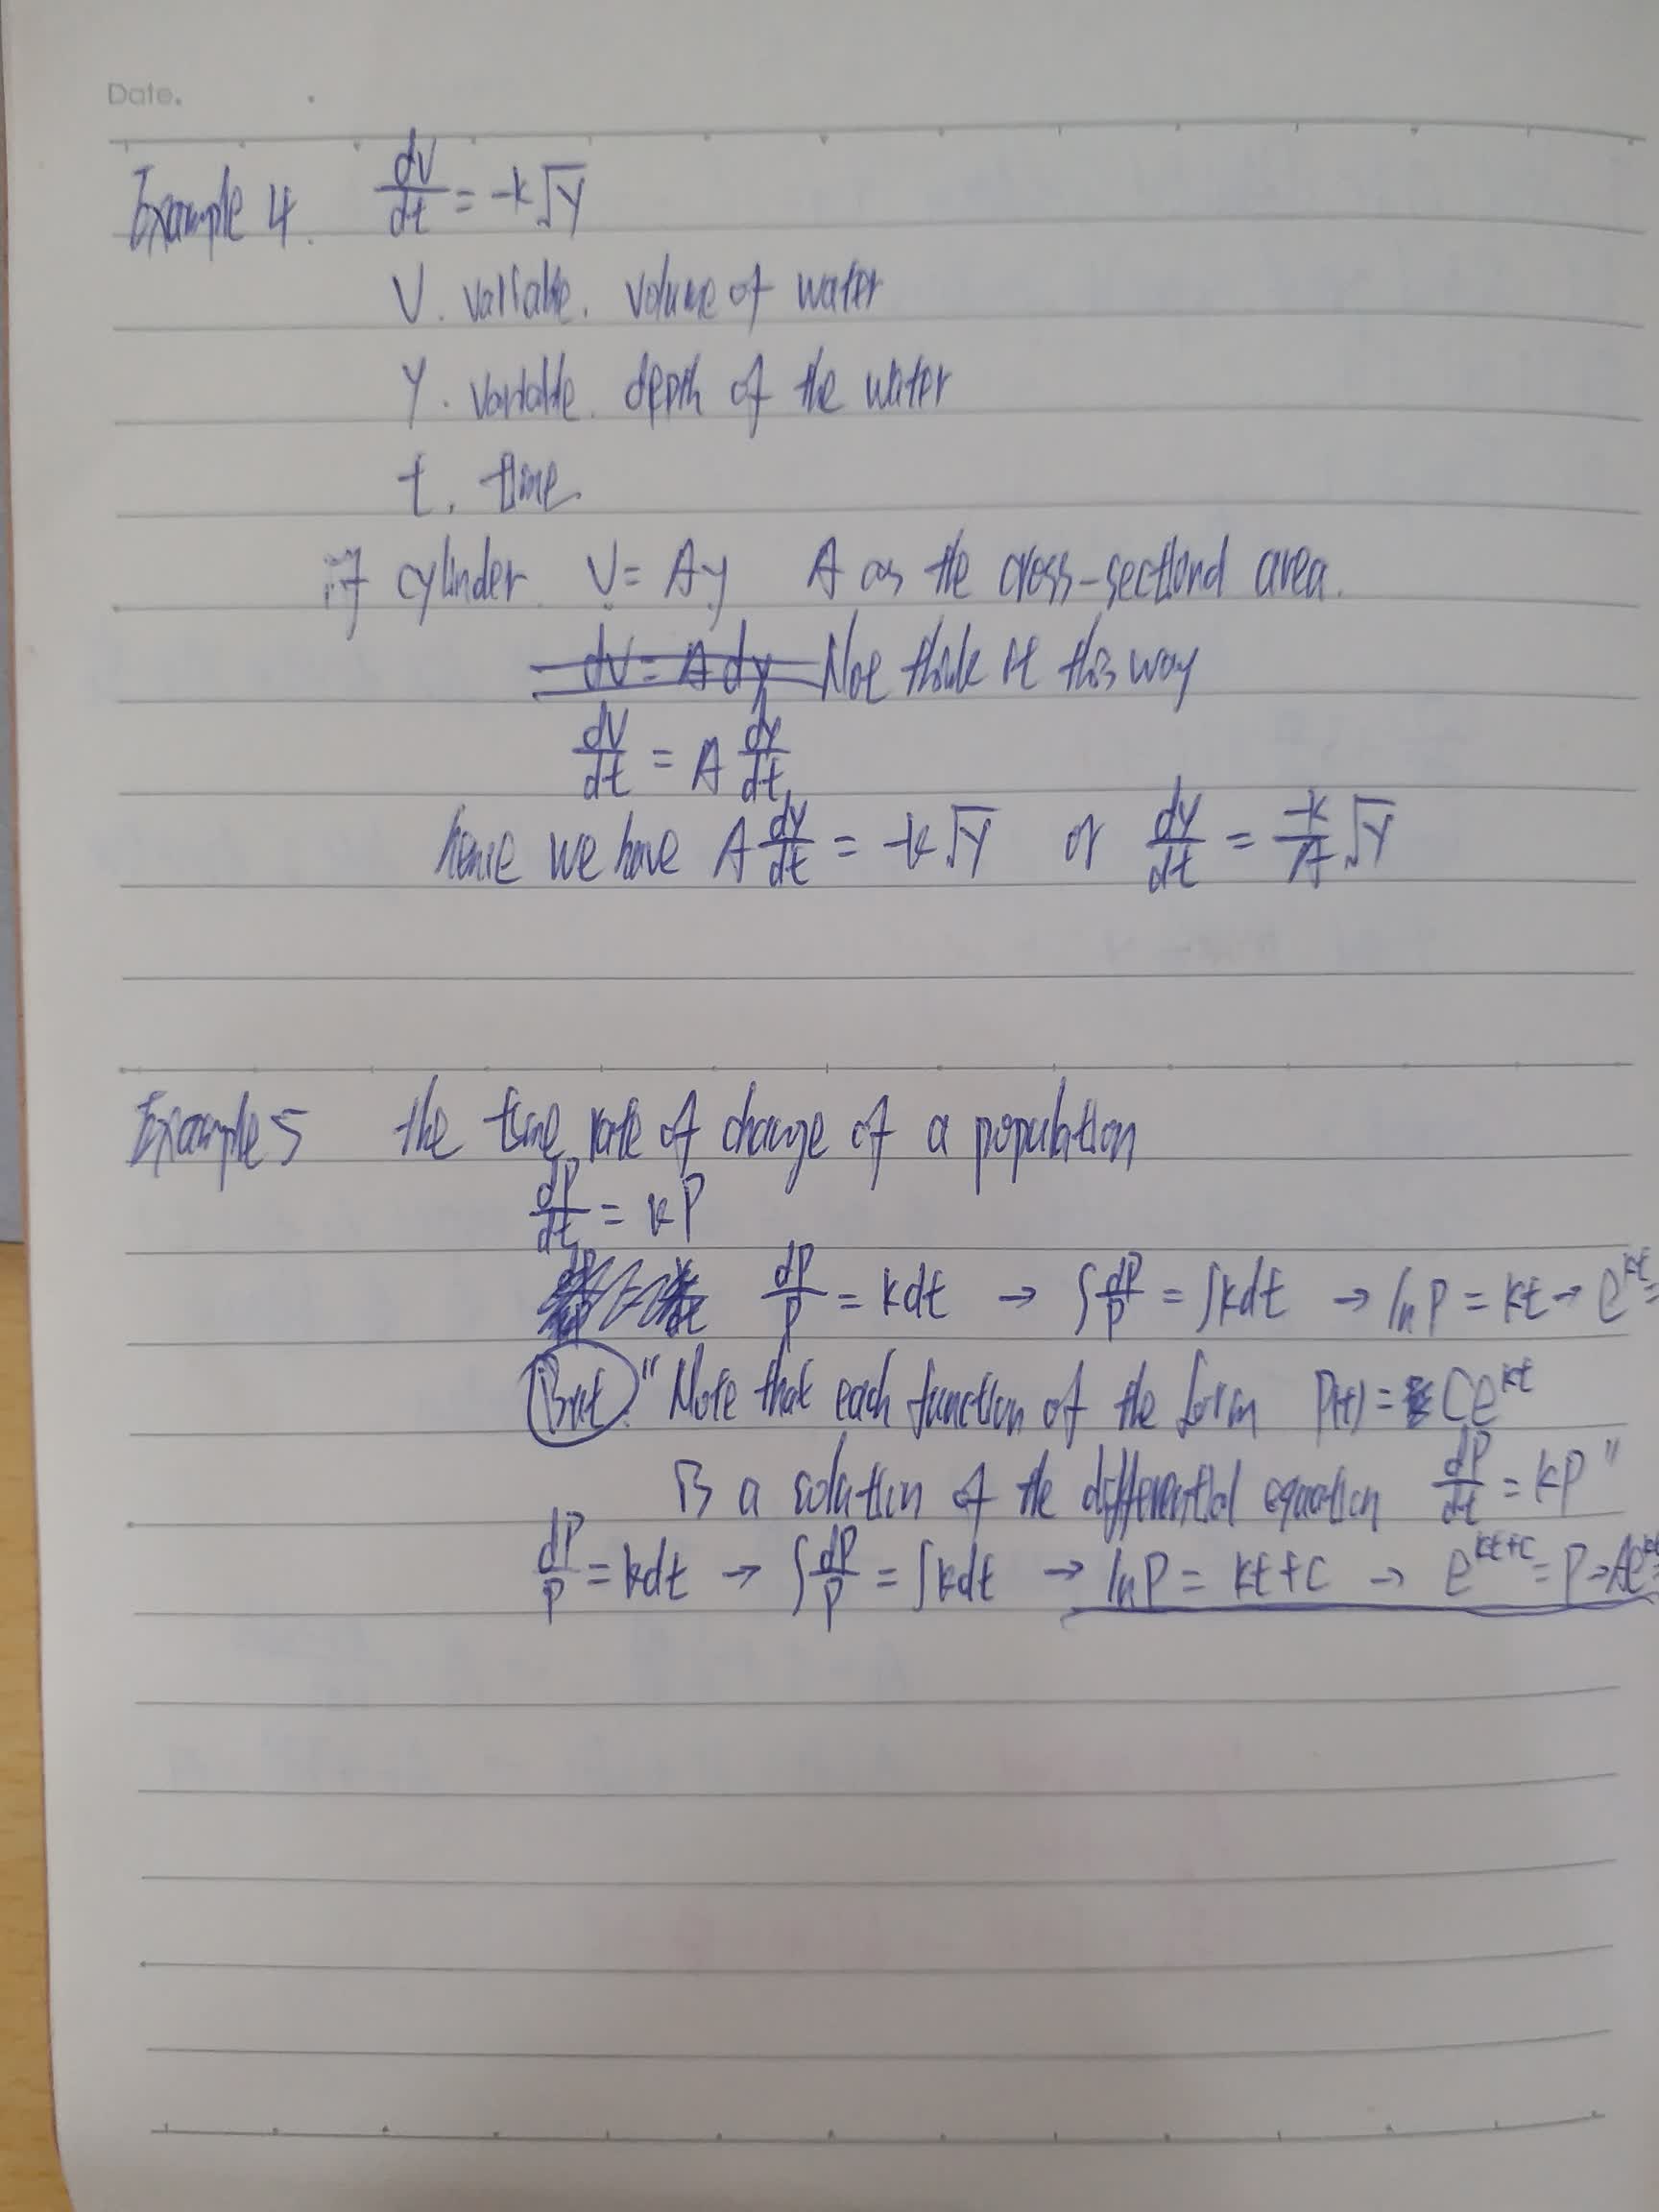 Date.
Example 4. dV/dt = -k√y
V. variable. volume of water
y. variable. depth of the water
t. time.
if cylinder. V = Ay A as the cross-sectional area.
dV = A dy Not think it this way
dV/dt = A dy/dt
hence we have A dy/dt = -k√y or dy/dt = -k/A √y
Example 5 the time rate of change of a population
dP/dt = kP
dP/P = kdt → ∫dP/P = ∫kdt → ln P = kt → e^kt =
But. "Note that each function of the form P(t) = Ce^kt
is a solution of the differential equation dP/dt = kP"
dP/P = kdt → ∫dP/P = ∫kdt → ln P = kt+C → e^kt+C = P = Ae^kt